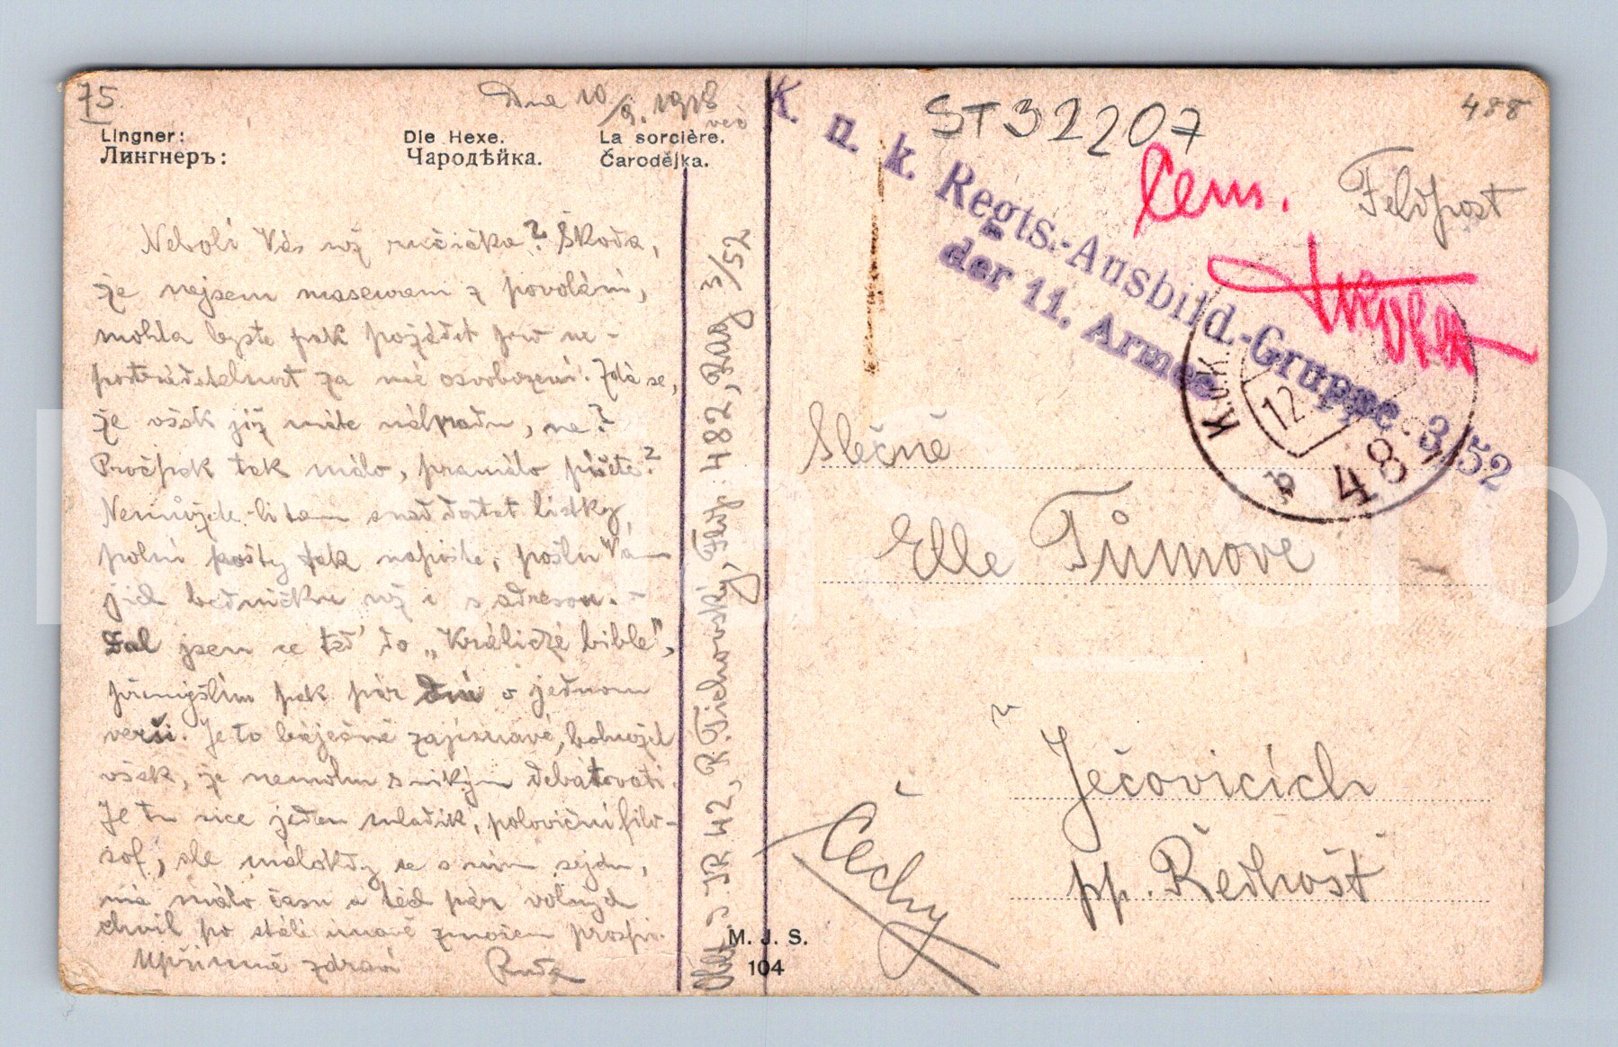 75
Dne 10/9. 1918
več
Lingner: Die Hexe. La sorcière.
Лингнеръ: Чародѣйка. Čarodějka.
Nebolí Vás už ručička? Škoda,
že nejsem masérem z povolání,
mohla byste pak požádat pro ne-
postradatelnost za mé osvobození. Zdá se,
že však již máte náhradu, ne?
Pročpak tak málo, pramálo píšete?
Nemůžete-li tam snad dostat lístky
polní pošty tak napište, pošlu Vám
jich bedničku už i s adresou. -
Dal jsem se teď do „Králické bible",
přemýšlím pak pár dní o jednom
verši. Je to báječně zajímavé, bohužel
však, že nemohu s nikým debatovati.
Je tu sice jeden mladík, poloviční filo-
sof, ale málokdy se s ním sejdu,
má málo času a též pár volných
chvil po stálé únavě
Upřímně zdraví Ruda
IR 42, R. Tichovský, Fldp. 482, Bag 3/52
M. J. S.
104
K. u. k. Regts.-Ausbild.-Gruppe 3/52
der 11. Armee
ST32207
488
Cens.
Feldpost
K.u.K.
12
48
b
Slečně
Elle Tůmove
v
Ječovicích
pp. Ředhošť
Čechy